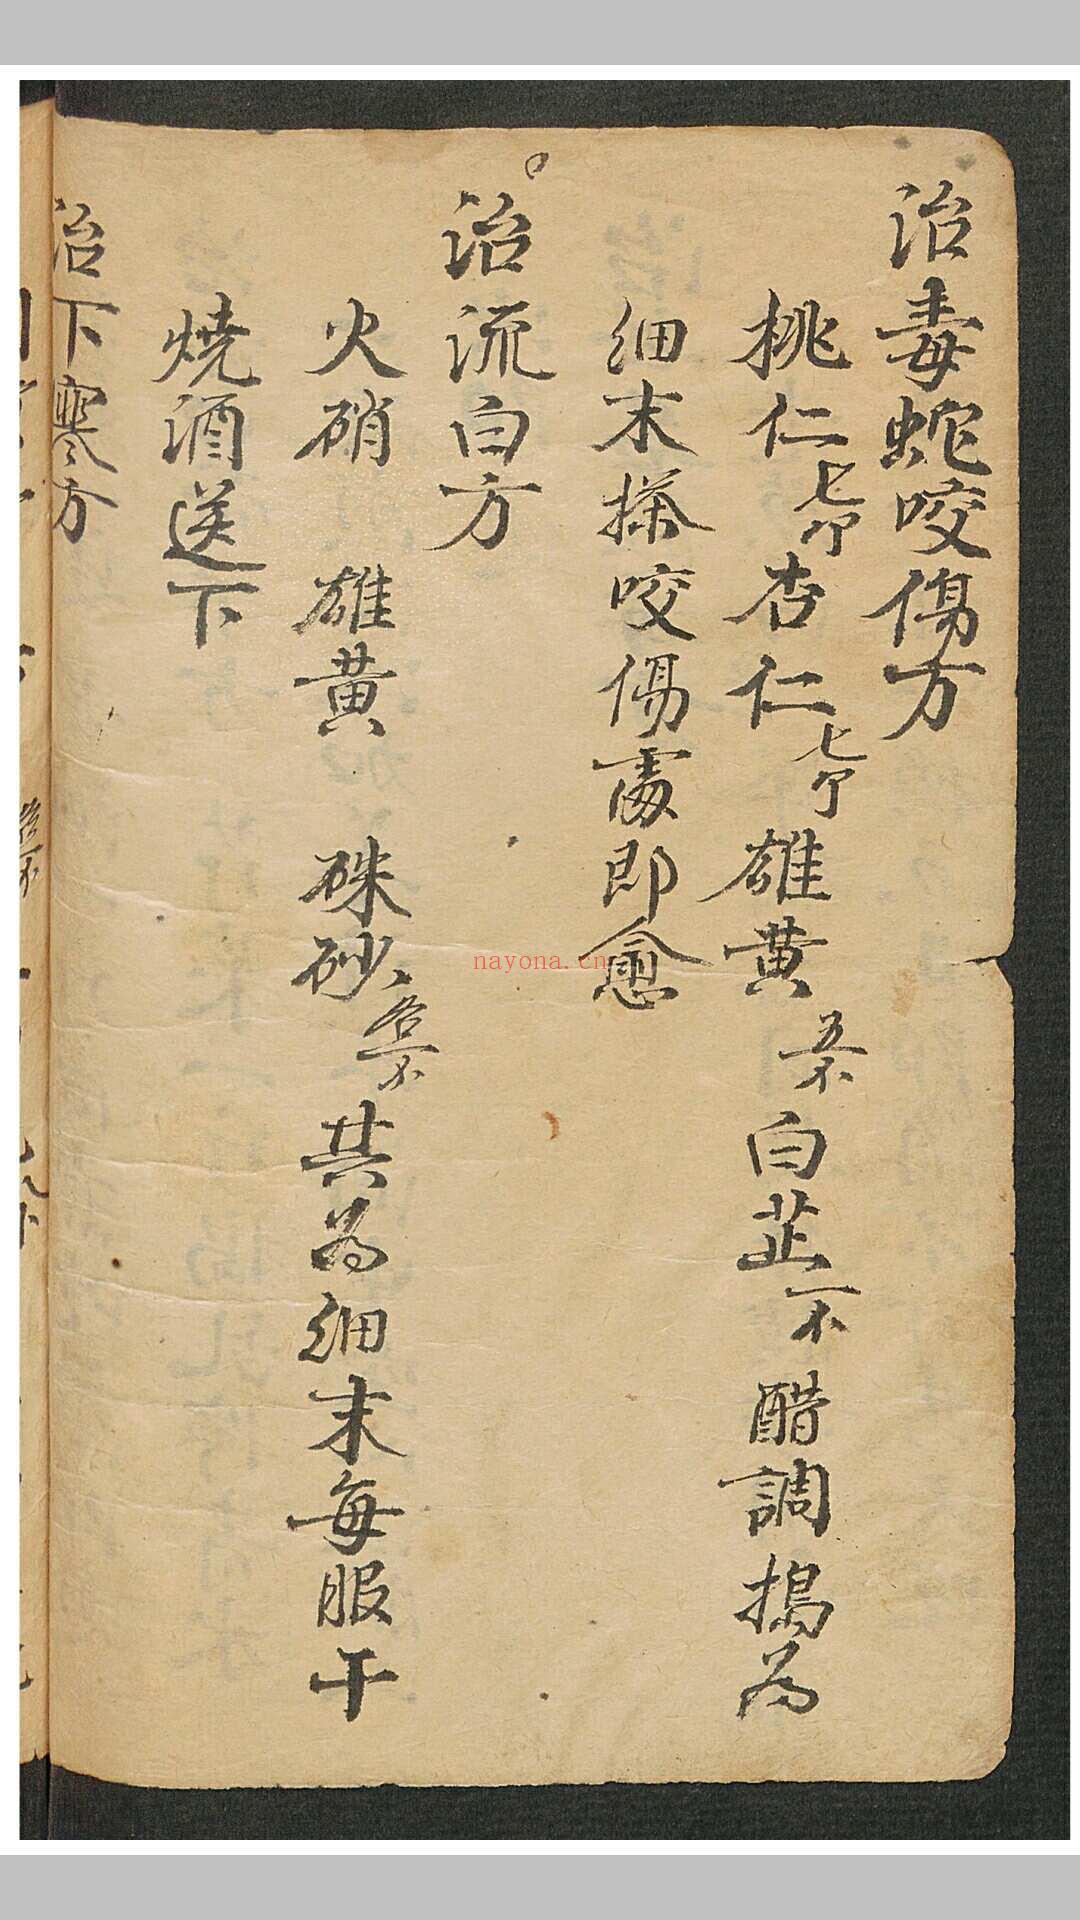 治毒蛇咬傷方
桃仁七个杏仁七个雄黃五不白芷一不醋調搗為
细末搽咬傷處即愈
治流白方
火硝 雄黃 硃砂各一不共為细末每服干
燒酒送下
治下寒方
nayona.cn